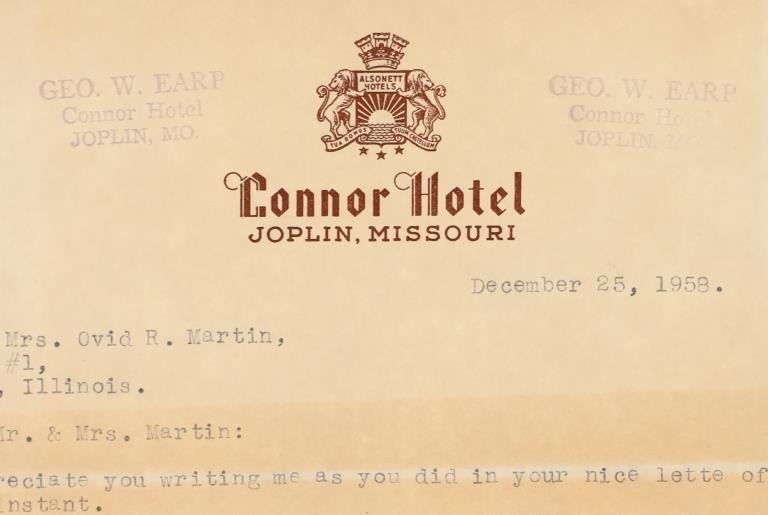 GEO. W. EARP
Connor Hotel
JOPLIN, MO.
ALSONETT
HOTELS
TUA DOMUS TUUM CASTELLUM
GEO. W. EARP
Connor Hotel
JOPLIN, MO.
Connor Hotel
JOPLIN, MISSOURI
December 25, 1958.
Mrs. Ovid R. Martin,
#1,
, Illinois.
Mr. & Mrs. Martin:
reciate you writing me as you did in your nice lette of
instant.